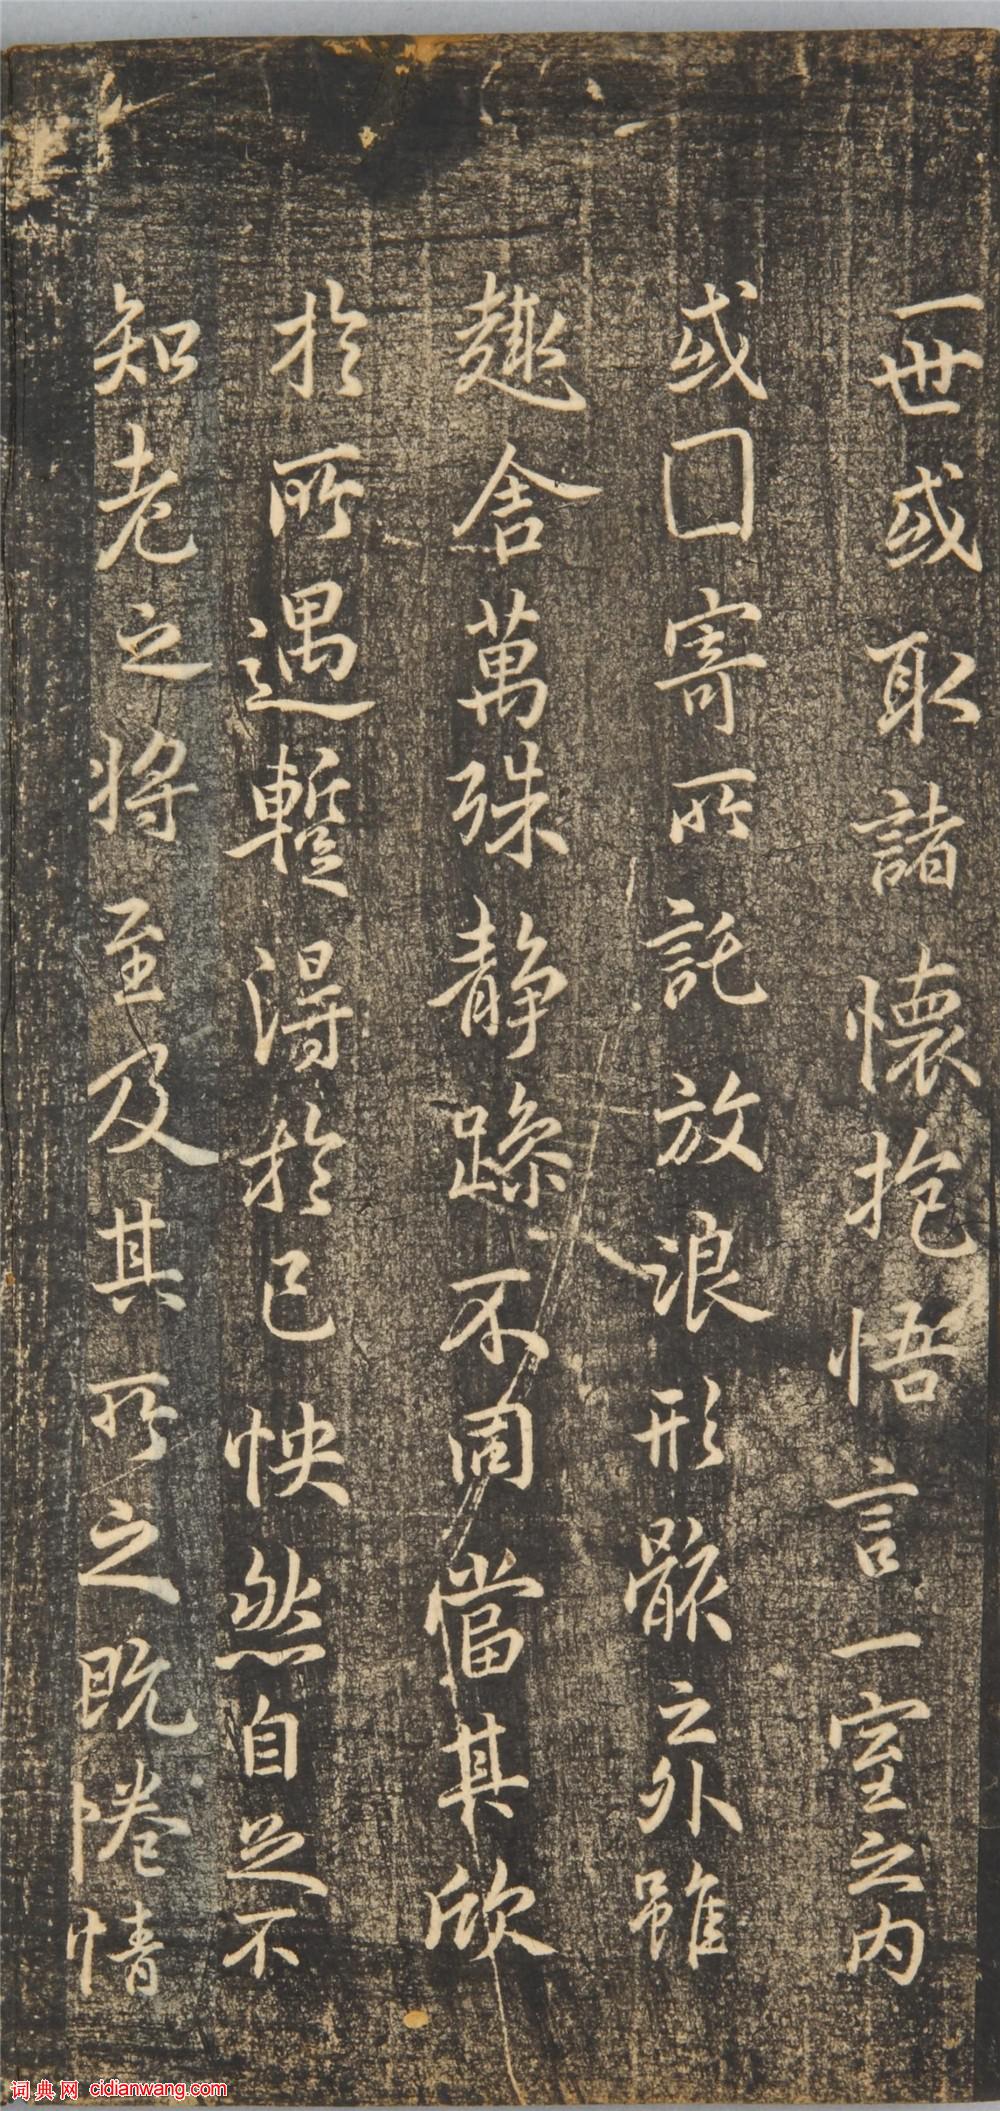 一世或取諸懷抱悟言一室之内
或囙寄所託放浪形骸之外雖
趣舍萬殊静躁不同當其欣
於所遇蹔得於己怏然自足不
知老之將至及其所之既惓情
词典网 cidianwang.com